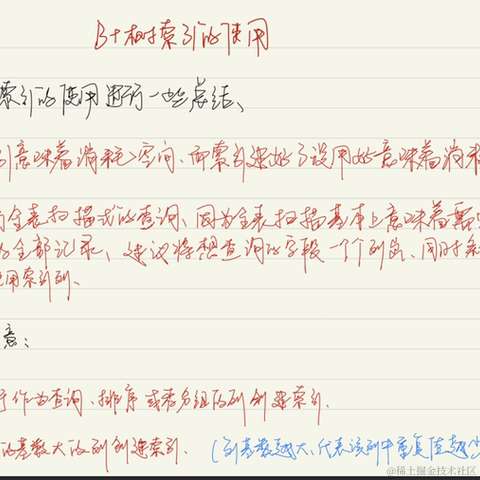 B+树索引的使用
索引的使用进行一些总结、
引意味着消耗空间、而索引建好了没用好意味着消耗
的全表扫描式的查询、因为全表扫描基本上意味着需
全部记录、建议将想查询的字段一个个列出、同时
使用索引列、
意：
于作为查询、排序或者分组的列创建索引、
的基数大的列创建索引、（列基数越大、代表该列中重复值越少
@稀土掘金技术社区